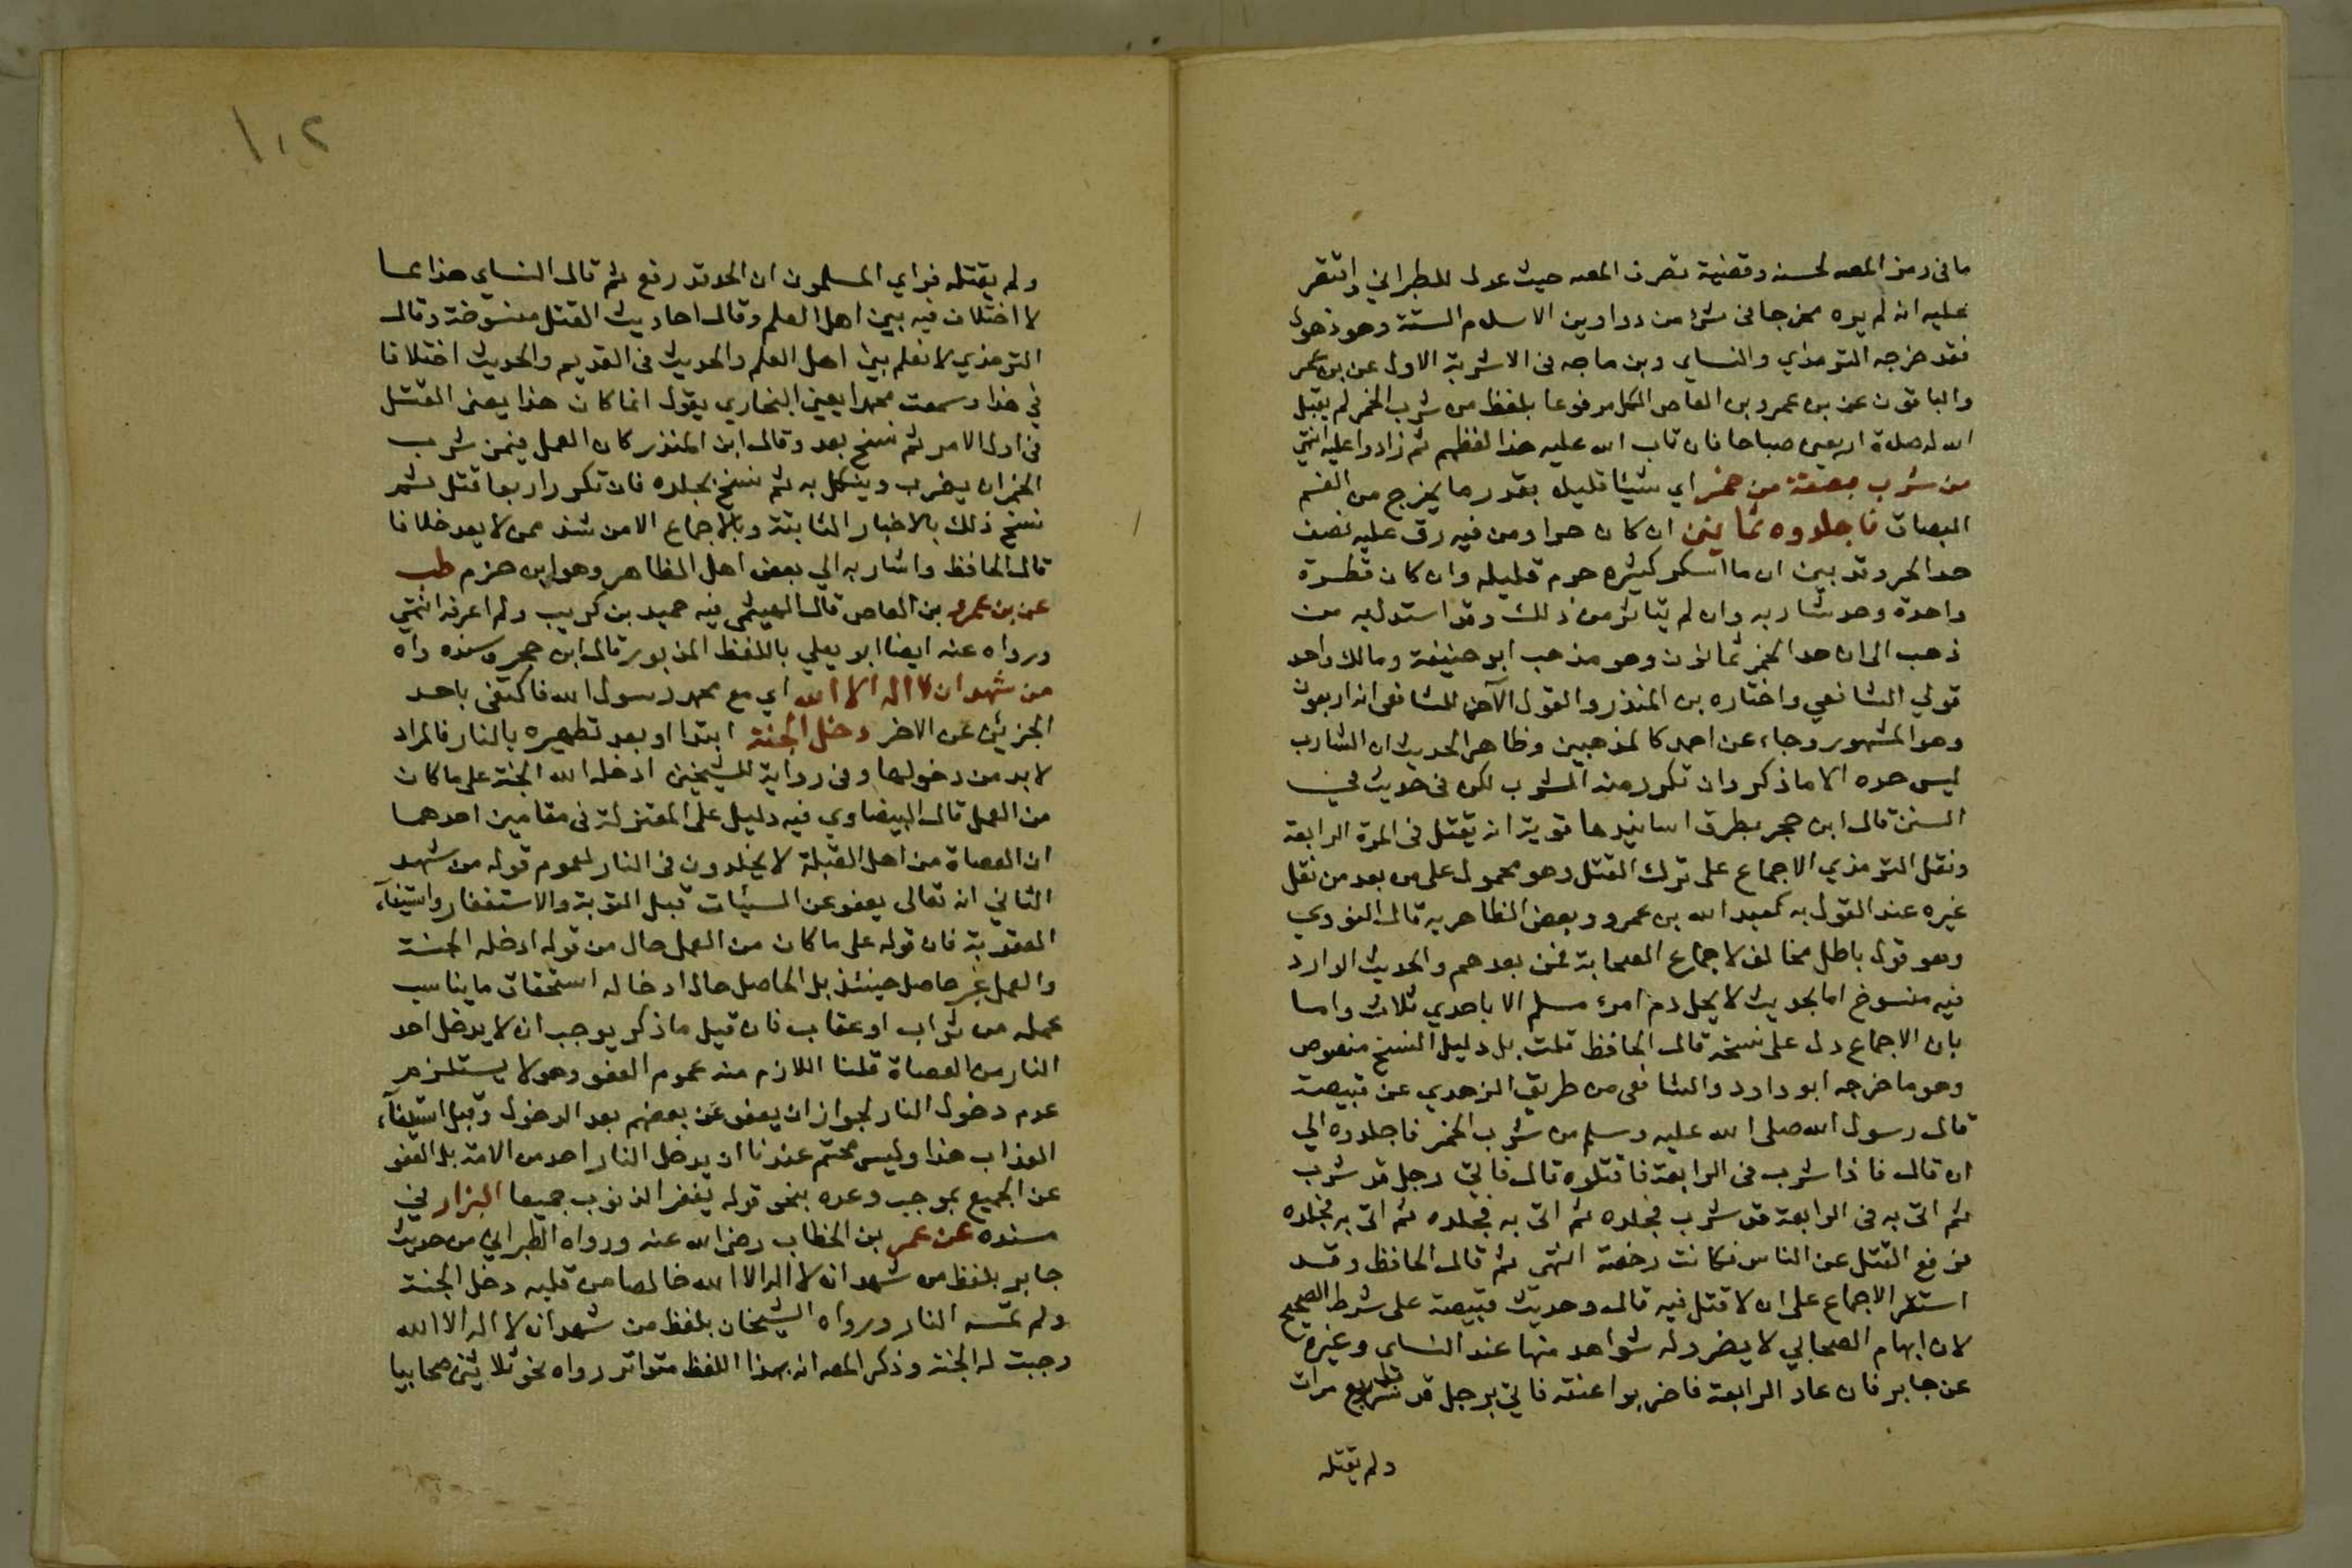 ما فى رمز المصه لحسنه وقضية تصرف المصه حيث عدل للطبراني واقتصر
عليه انه لم يره مخرجا فى شئ من دواوين الاسلام الستة وهو ذهول
فقد خرجه الترمذي والنساي وبن ماجه فى الاشربة الاول عن بن عمر
والباقون عن بن عمرو بن العاص الكل مرفوعا بلفظ من شرب الخمر لم يقبل
الله له صلاة اربعين صباحا فان تاب تاب الله عليه هذا لفظهم ثم زادوا عليه انتهي
من شرب بصقة من خمر اي شيئا قليلا بقدر ما يخرج من الفم
البصاق فاجلدوه ثمانين ان كان حرا ومن فيه رق عليه نصف
حد الحر وقد بين ان ما اسكر كثيره حرم قليله وان كان قطرة
واحدة وحد شاربه وان لم يتاثر من ذلك وقد استدل به من
ذهب الى ان حد الخمر ثمانون وهو مذهب ابو حنيفة ومالك واحد
قولي الشافعي واختاره بن المنذر والقول الآخر للشافعى انه اربعون
وهو المشهور وجاء عن احمد كالمذهبين وظاهر الحديث ان الشارب
ليس حده الا ما ذكر وان تكرر منه الشرب لكن فى حديث في
السنن قال ابن حجر بطرق اسانيدها قوية انه يقتل فى المرة الرابعة
ونقل الترمذي الاجماع على ترك القتل وهو محمول على من بعد من نقل
غيره عند القول به كعبد الله بن عمرو وبعض الظاهرية قال النووي
وهو قول باطل مخالف لاجماع الصحابة فمن بعدهم والحديث الوارد
فيه منسوخ اما بحديث لا يحل دم امرئ مسلم الا باحدي ثلاث واما
بان الاجماع دل على نسخه قال الحافظ قلت بل دليل النسخ منصوص
وهو ما خرجه ابو داود والشافعى من طريق الزهدي عن قبيصة
قال رسول الله صلى الله عليه وسلم من شرب الخمر فاجلدوه الي
ان قال فاذا شرب فى الرابعة فاقتلوه قال فاتي رجل قد شرب
ثم اتى به فى الرابعة قد شرب فجلده ثم اتى به فجلده ثم اتى به فجلده
فرفع القتل عن الناس فكانت رخصة انتهى ثم قال الحافظ وقد
استقر الاجماع على ان لا قتل فيه قال وحديث قبيصة على شرط الصحيح
لان ابهام الصحابي لا يضر وله شواهد منها عند النساى وغيره
عن جابر فان عاد الرابعة فاضربوا عنقه فاتي برجل قد شرب اربع مرات
ولم يقتله
١٠٢
ولم يقتله فراي المسلمون ان الحد قد رفع ثم قال النساي هذا مما
لا اختلاف فيه بين اهل العلم وقال احاديث القتل منسوخة وقال
الترمذي لا نعلم بين اهل العلم والحديث فى القديم والحديث اختلافا
في هذا وسمعت محمدا يعين البخاري يقول انما كان هذا يعنى القتل
فى اول الامر ثم نسخ بعد وقال ابن المنذر كان العمل فيمن شرب
الخمر ان يضرب وينكل به ثم نسخ بجلده فان تكرر اربعا قتل ثم
نسخ ذلك بالاخبار الثابتة وبالاجماع الا من شذ ممن لا يعد خلافا
قال الحافظ واشار به الي بعض اهل الظاهر وهو ابن حزم طب
عن بن عمرو بن العاص قال الهيثمى فيه حميد بن كريب ولم اعرفه انتهي
ورواه عنه ايضا ابو يعلي باللفظ المذبور قال ابن حجر وسنده واه
من شهد ان لا اله الا الله اي مع محمد رسول الله فاكتفى باحد
الجزئين عن الاخر دخل الجنة ابتدا او بعد تطهيره بالنار فالمراد
لا بد من دخولها وفى رواية للشيخين ادخله الله الجنة على ما كان
من العمل قال البيضاوي فيه دليل على المعتزلة فى مقامين احدهما
ان العصاة من اهل القبلة لا يخلدون فى النار لعموم قوله من شهد
الثاني انه تعالى يعفو عن السيئات قبل التوبة والاستغفار واستيفآء
العقوبة فان قوله على ما كان من العمل حال من قوله ادخله الجنة
والعمل غير حاصل حينئذ بل الحاصل حال ادخاله استحقاق ما يناسب
عمله من ثواب او عقاب فان قيل ما ذكر يوجب ان لا يدخل احد
النار من العصاة قلنا اللازم منه عموم العفو وهو لا يستلزم
عدم دخول النار لجواز ان يعفو عن بعضهم بعد الدخول وقبل استيفآء
العذاب هذا وليس محتم عندنا ان يدخل النار احد من الامة بل العفو
عن الجميع بموجب وعده بنحو قوله يغفر الذنوب جميعا البزار في
مسنده عن عمر بن الخطاب رضى الله عنه ورواه الطبراني من حديث
جابر بلفظ من شهد ان لا اله الا الله خالصا من قلبه دخل الجنة
ولم تمسه النار ورواه الشيخان بلفظ من شهد ان لا اله الا الله
وجبت له الجنة وذكر المصه انه بهذا اللفظ متواتر رواه نحو ثلاثين صحابيا